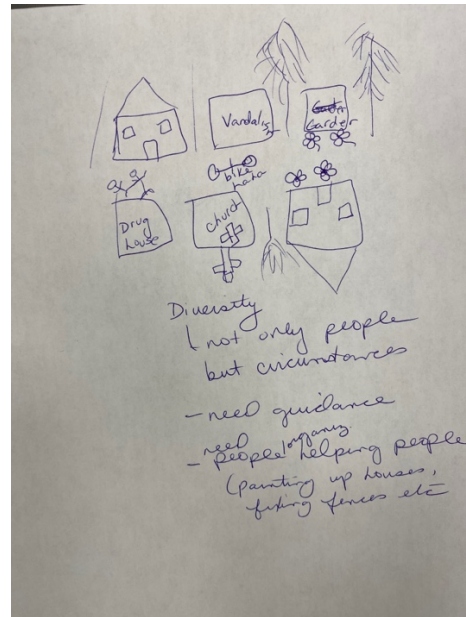 Vandalism
Garden
bike
Drug
house
church
Diversity
not only people
but circumstances
- need guidance
need organiz.
- people helping people
(painting up houses,
fixing fences etc